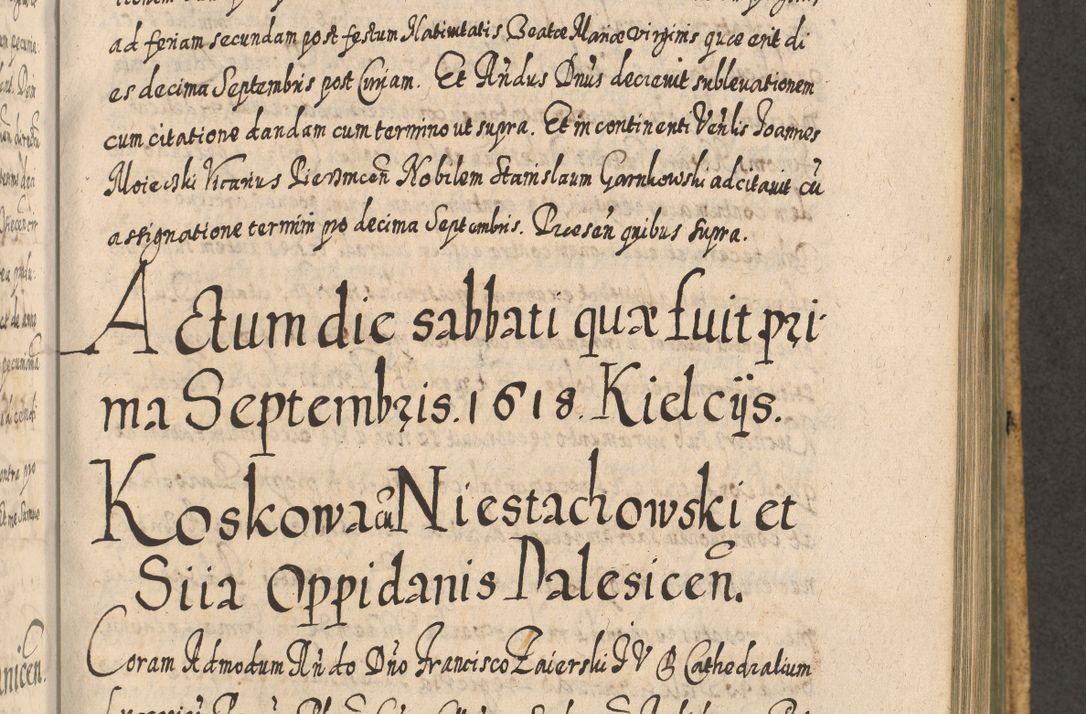 ad feriam secundam post festum Nativitatis Beatæ Mariæ virginis quæ erit di
es decima Septembris post Curiam. Et Añdus Dñus decrevit sublevationem
cum citatione dandam cum termino ut supra. Et in continenti Veñlis Joannes
Vicarius Nobilem Stanislaum Garnkowski adcitavit cũ
assignatione termini pro decima Septembris. Præseñ quibus supra.
Actum die sabbati quæ fuit pri
ma Septembris. 1618. Kielcijs.
Koskowa cũ Niestachowski et
Siia oppidanis Dalesiceñ.
Coram Admodum Añdo Dño Francisco Zaierski I V D Cathedralium